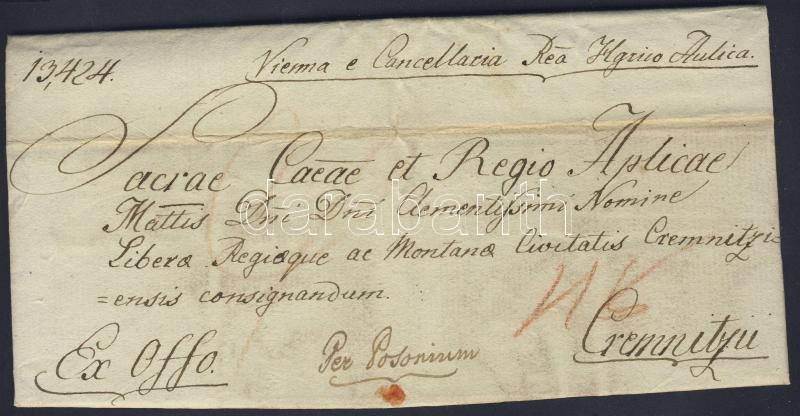 13,424.
Vienna e Cancellaria Reā Hgrico Aulica.
Sacrae Caeāe et Regio Aplicae
Mattis Dni Dni Clementissimi Nomine
Liberæ Regiæque ac Montanæ Civitatis Cremnitzi=
=ensis consignandum.
Ex Offo.
Per Posonium
Cremnitzii
darabanth